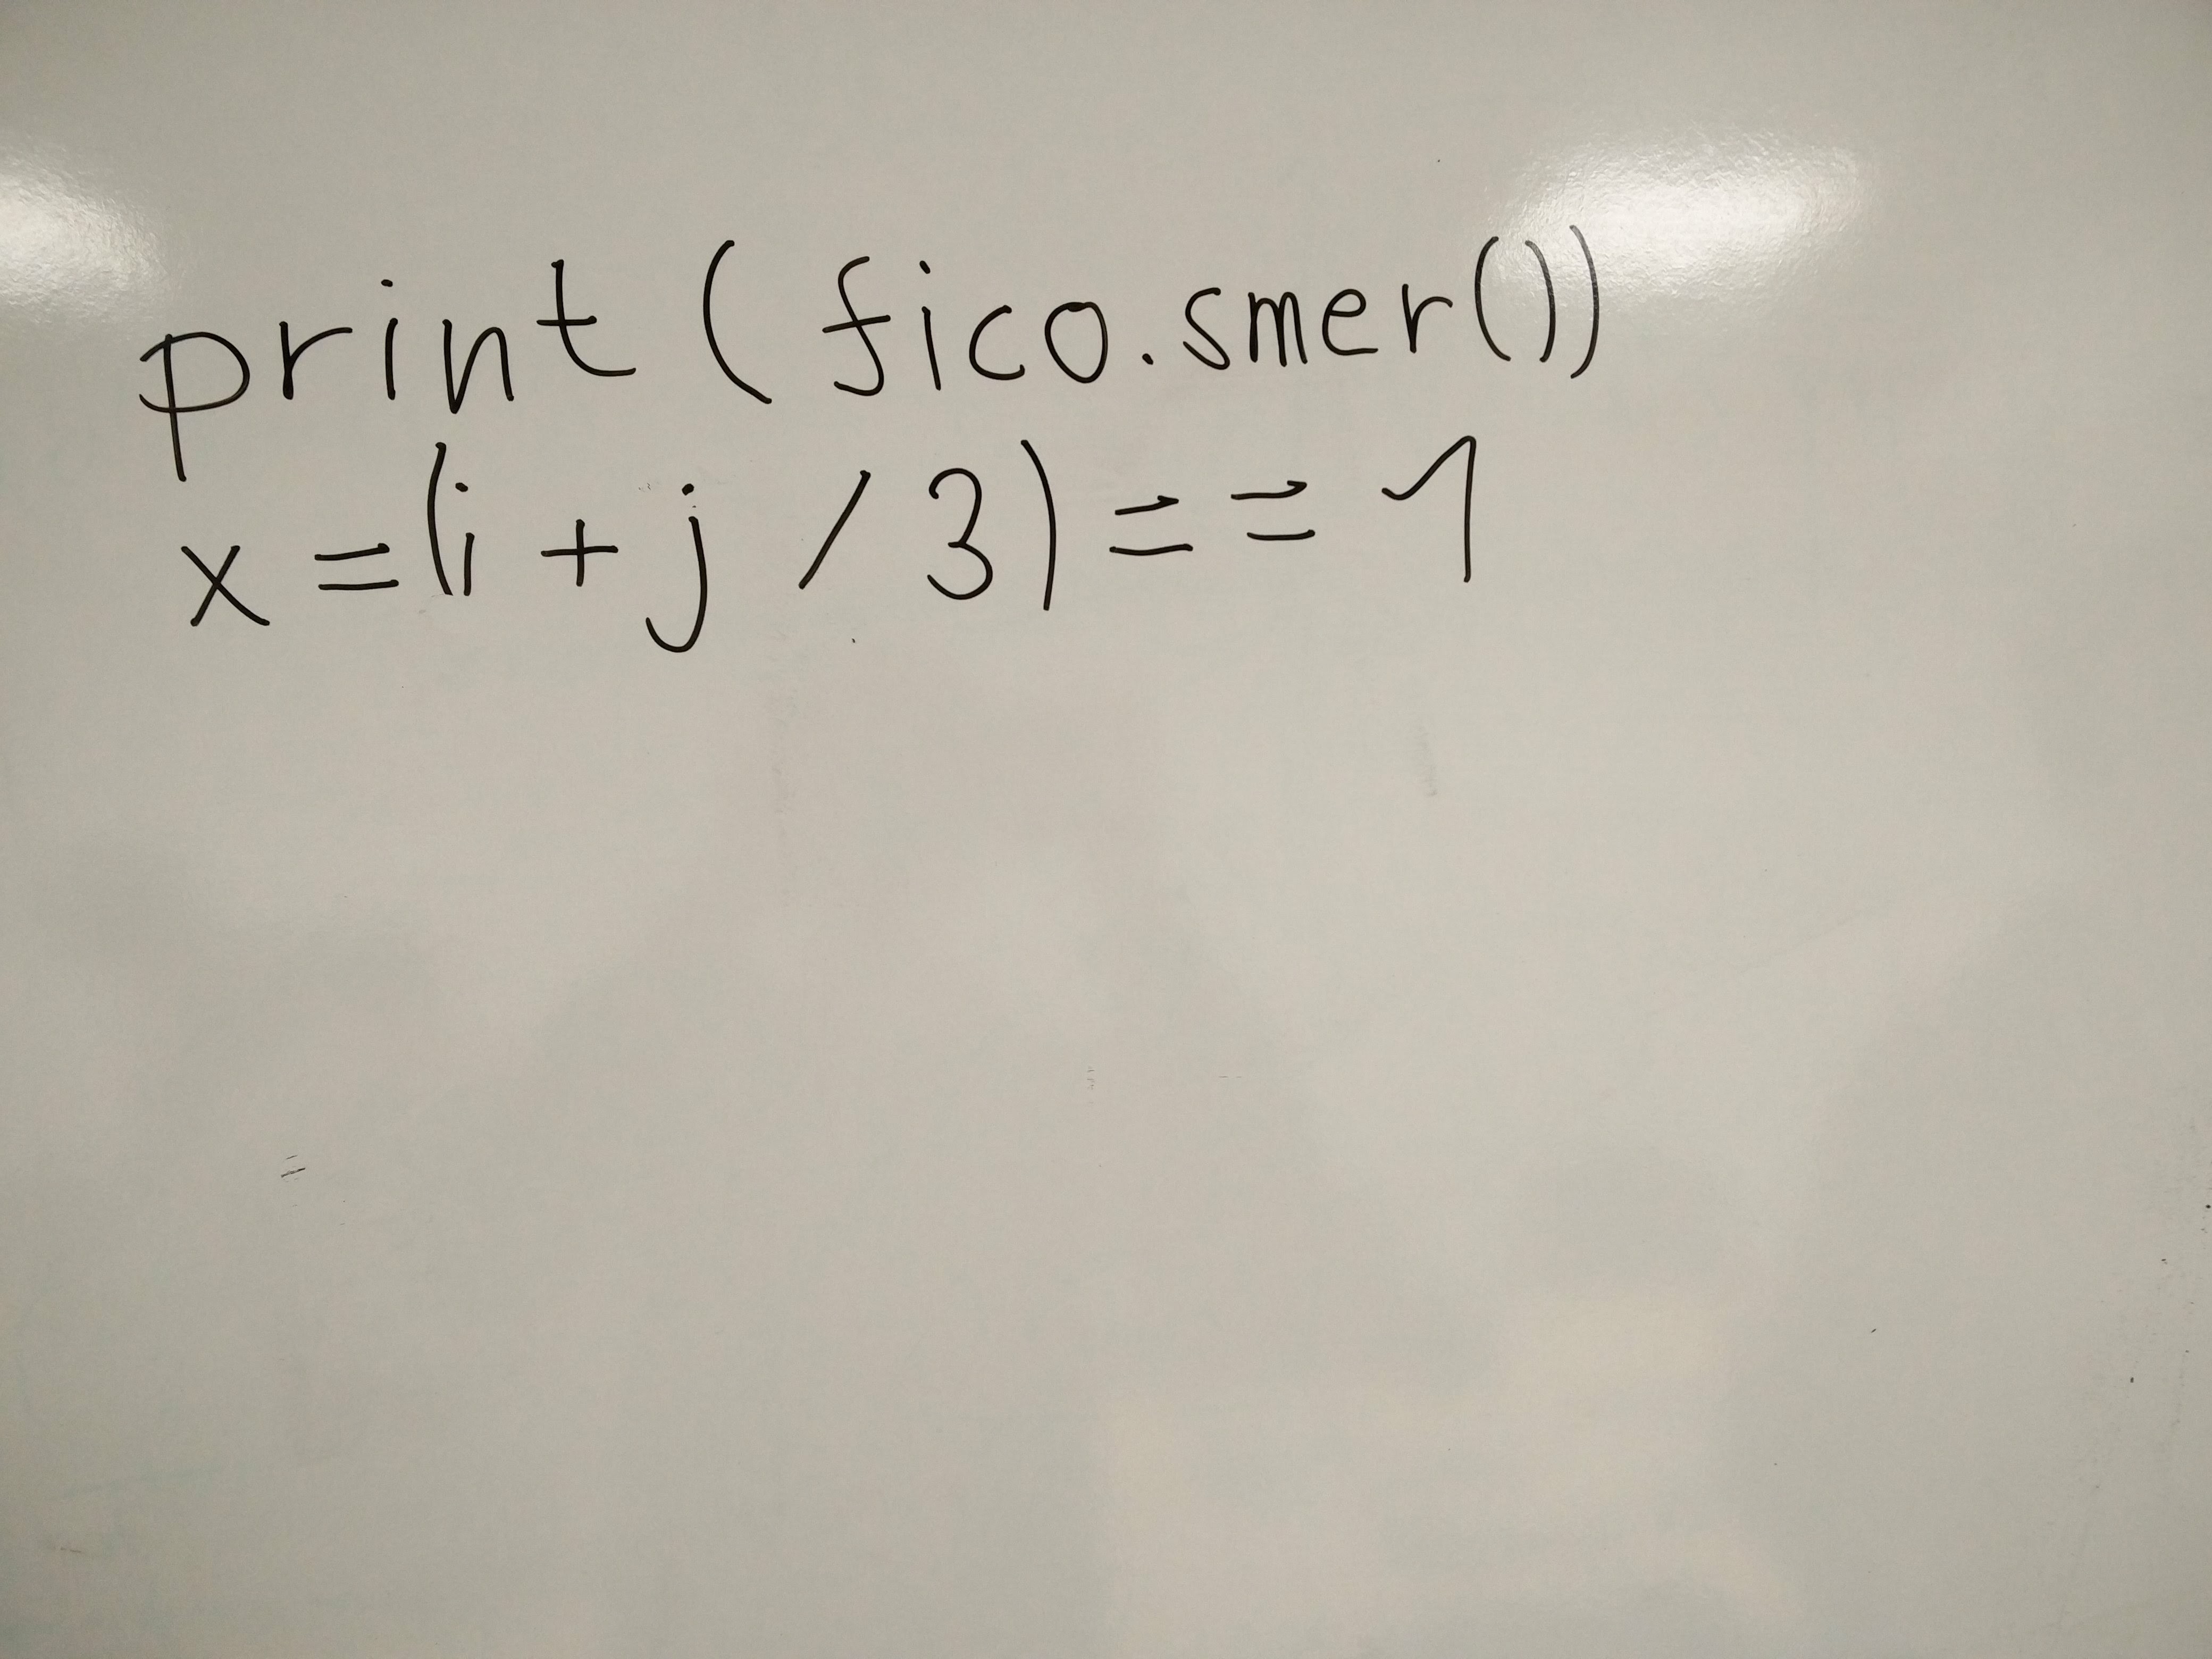 print ( fico.smer())
x = (i + j / 3) = = 1